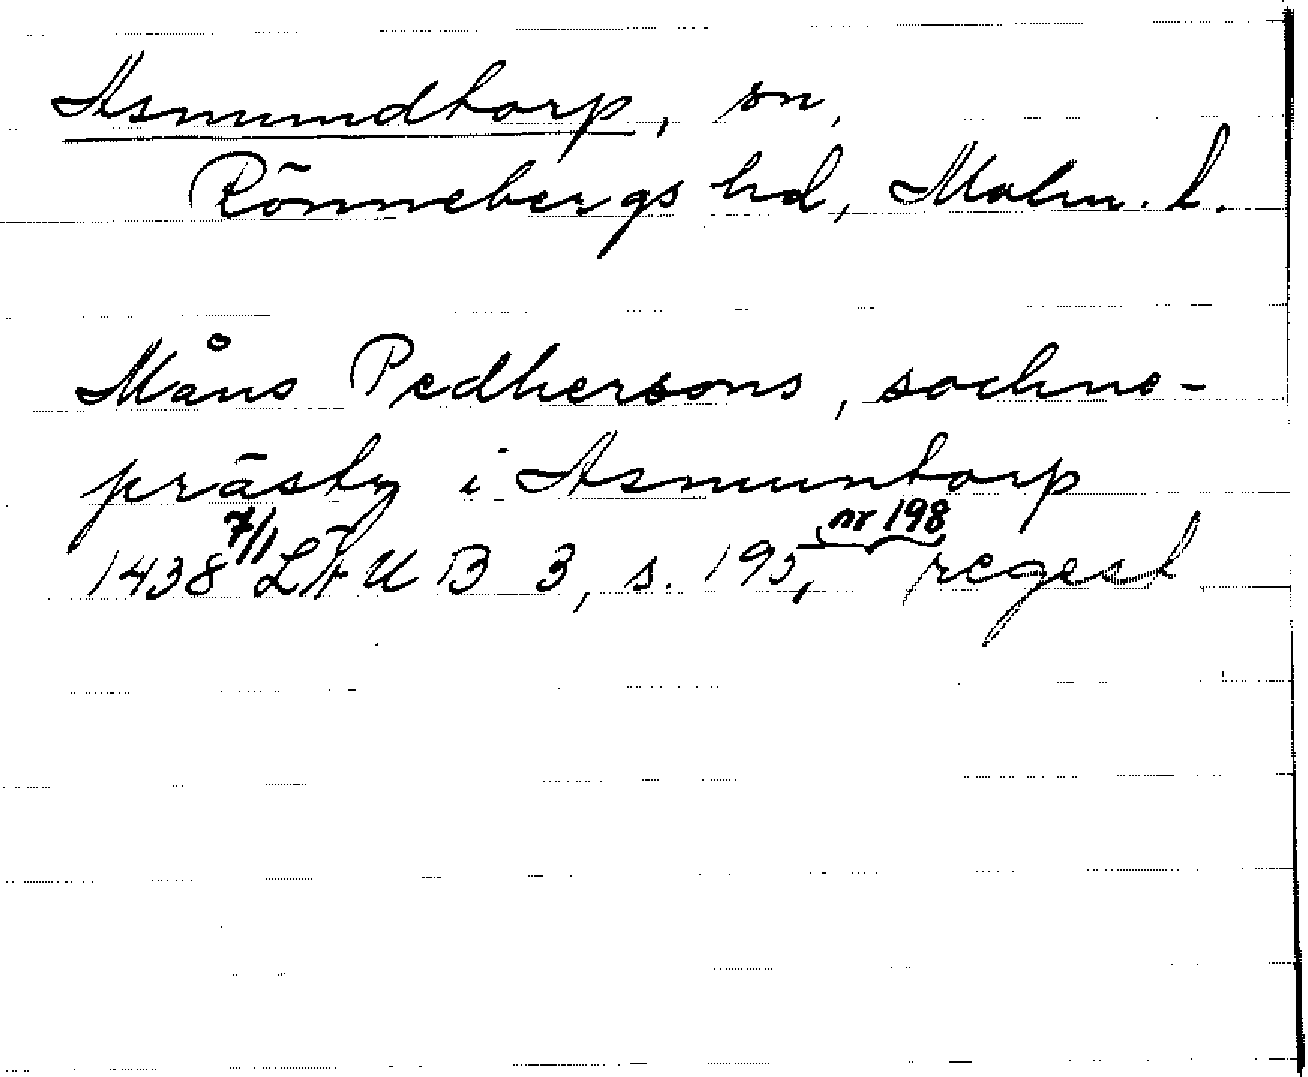 Asmundtorp, sn,
Rönnebergs hd, Malm. l.
Måns Pedhersons, sochne-
prästz i Asmuntorp
nr 198
1438 7/1 LÄUB 3, s. 195, regest